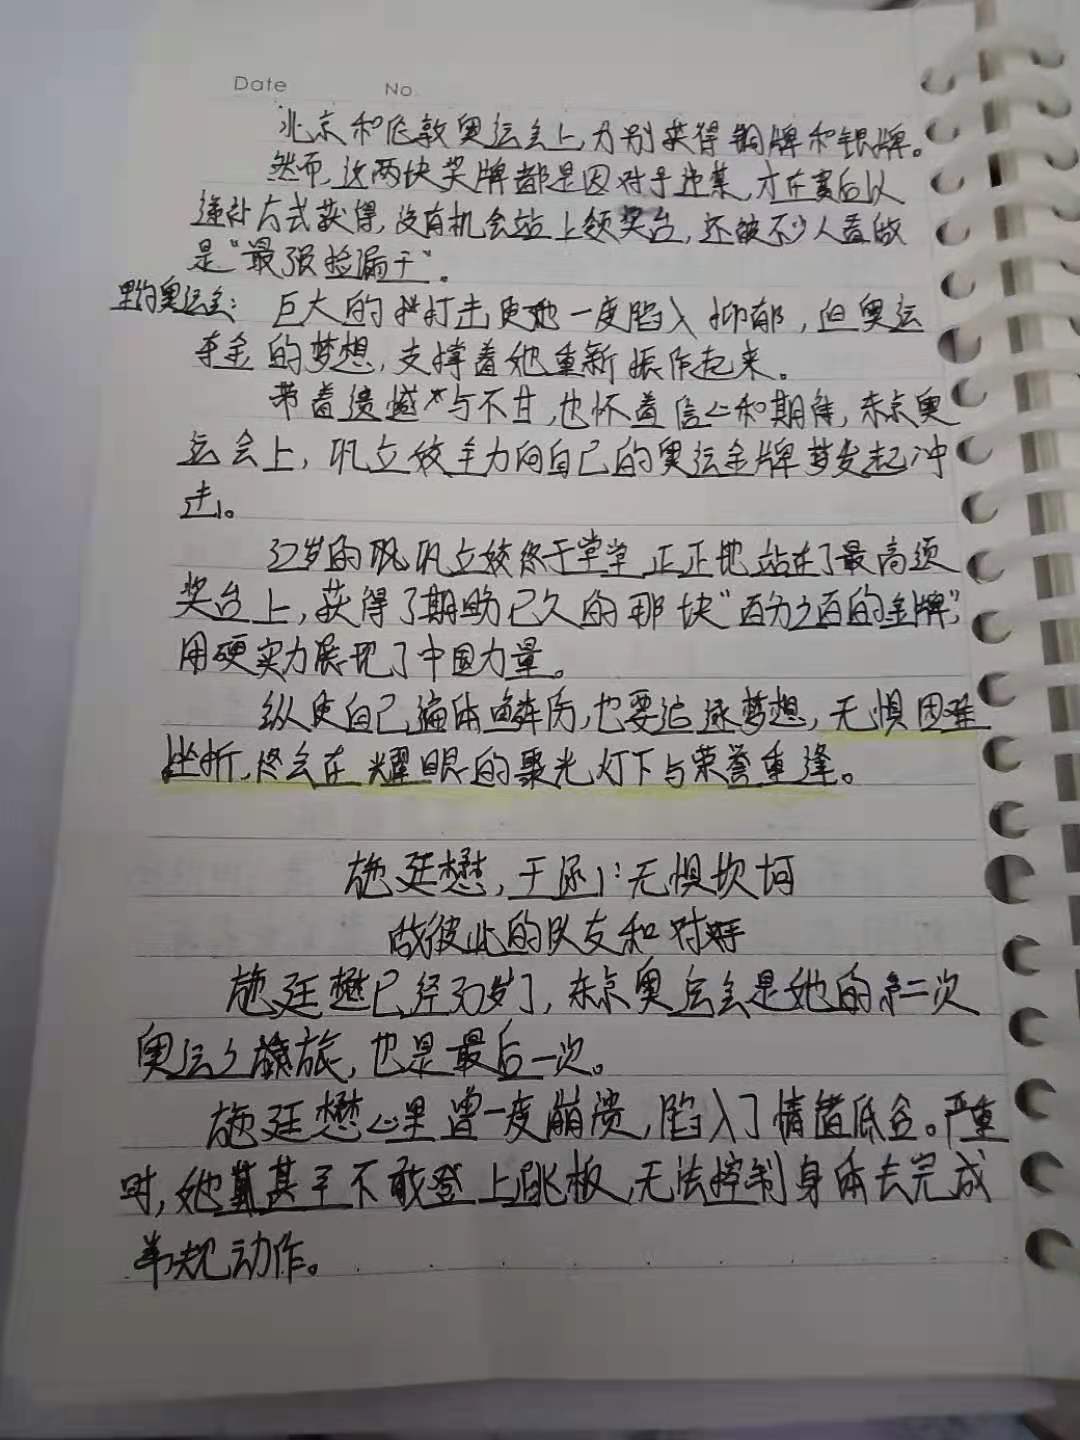 Date No.
北京和伦敦奥运会上,分别获得铜牌和银牌。
然而,这两块奖牌都是因对手违禁,才在赛后以
递补方式获得,没有机会站上领奖台,还被不少人看做
是“最强捡漏王”。
里约奥运会: 巨大的打击使她一度陷入抑郁,但奥运
夺金的梦想,支撑着她重新振作起来。
带着遗憾与不甘,也怀着信心和期待,东京奥
运会上,巩立姣全力向自己的奥运金牌梦发起冲
击。
32岁的巩立姣终于堂堂正正地站在了最高领
奖台上,获得了期盼已久的那块“百分之百的金牌”,
用硬实力展现了中国力量。
纵使自己遍体鳞伤,也要追逐梦想,无惧困难
挫折,终会在耀眼的聚光灯下与荣誉重逢。
施廷懋,王涵:无惧坎坷
做彼此的队友和对手
施廷懋已经30岁了,东京奥运会是她的第二次
奥运之旅,也是最后一次。
施廷懋心里曾一度崩溃,陷入了情绪低谷。严重
时,她甚至不敢登上跳板,无法控制身体去完成
常规动作。